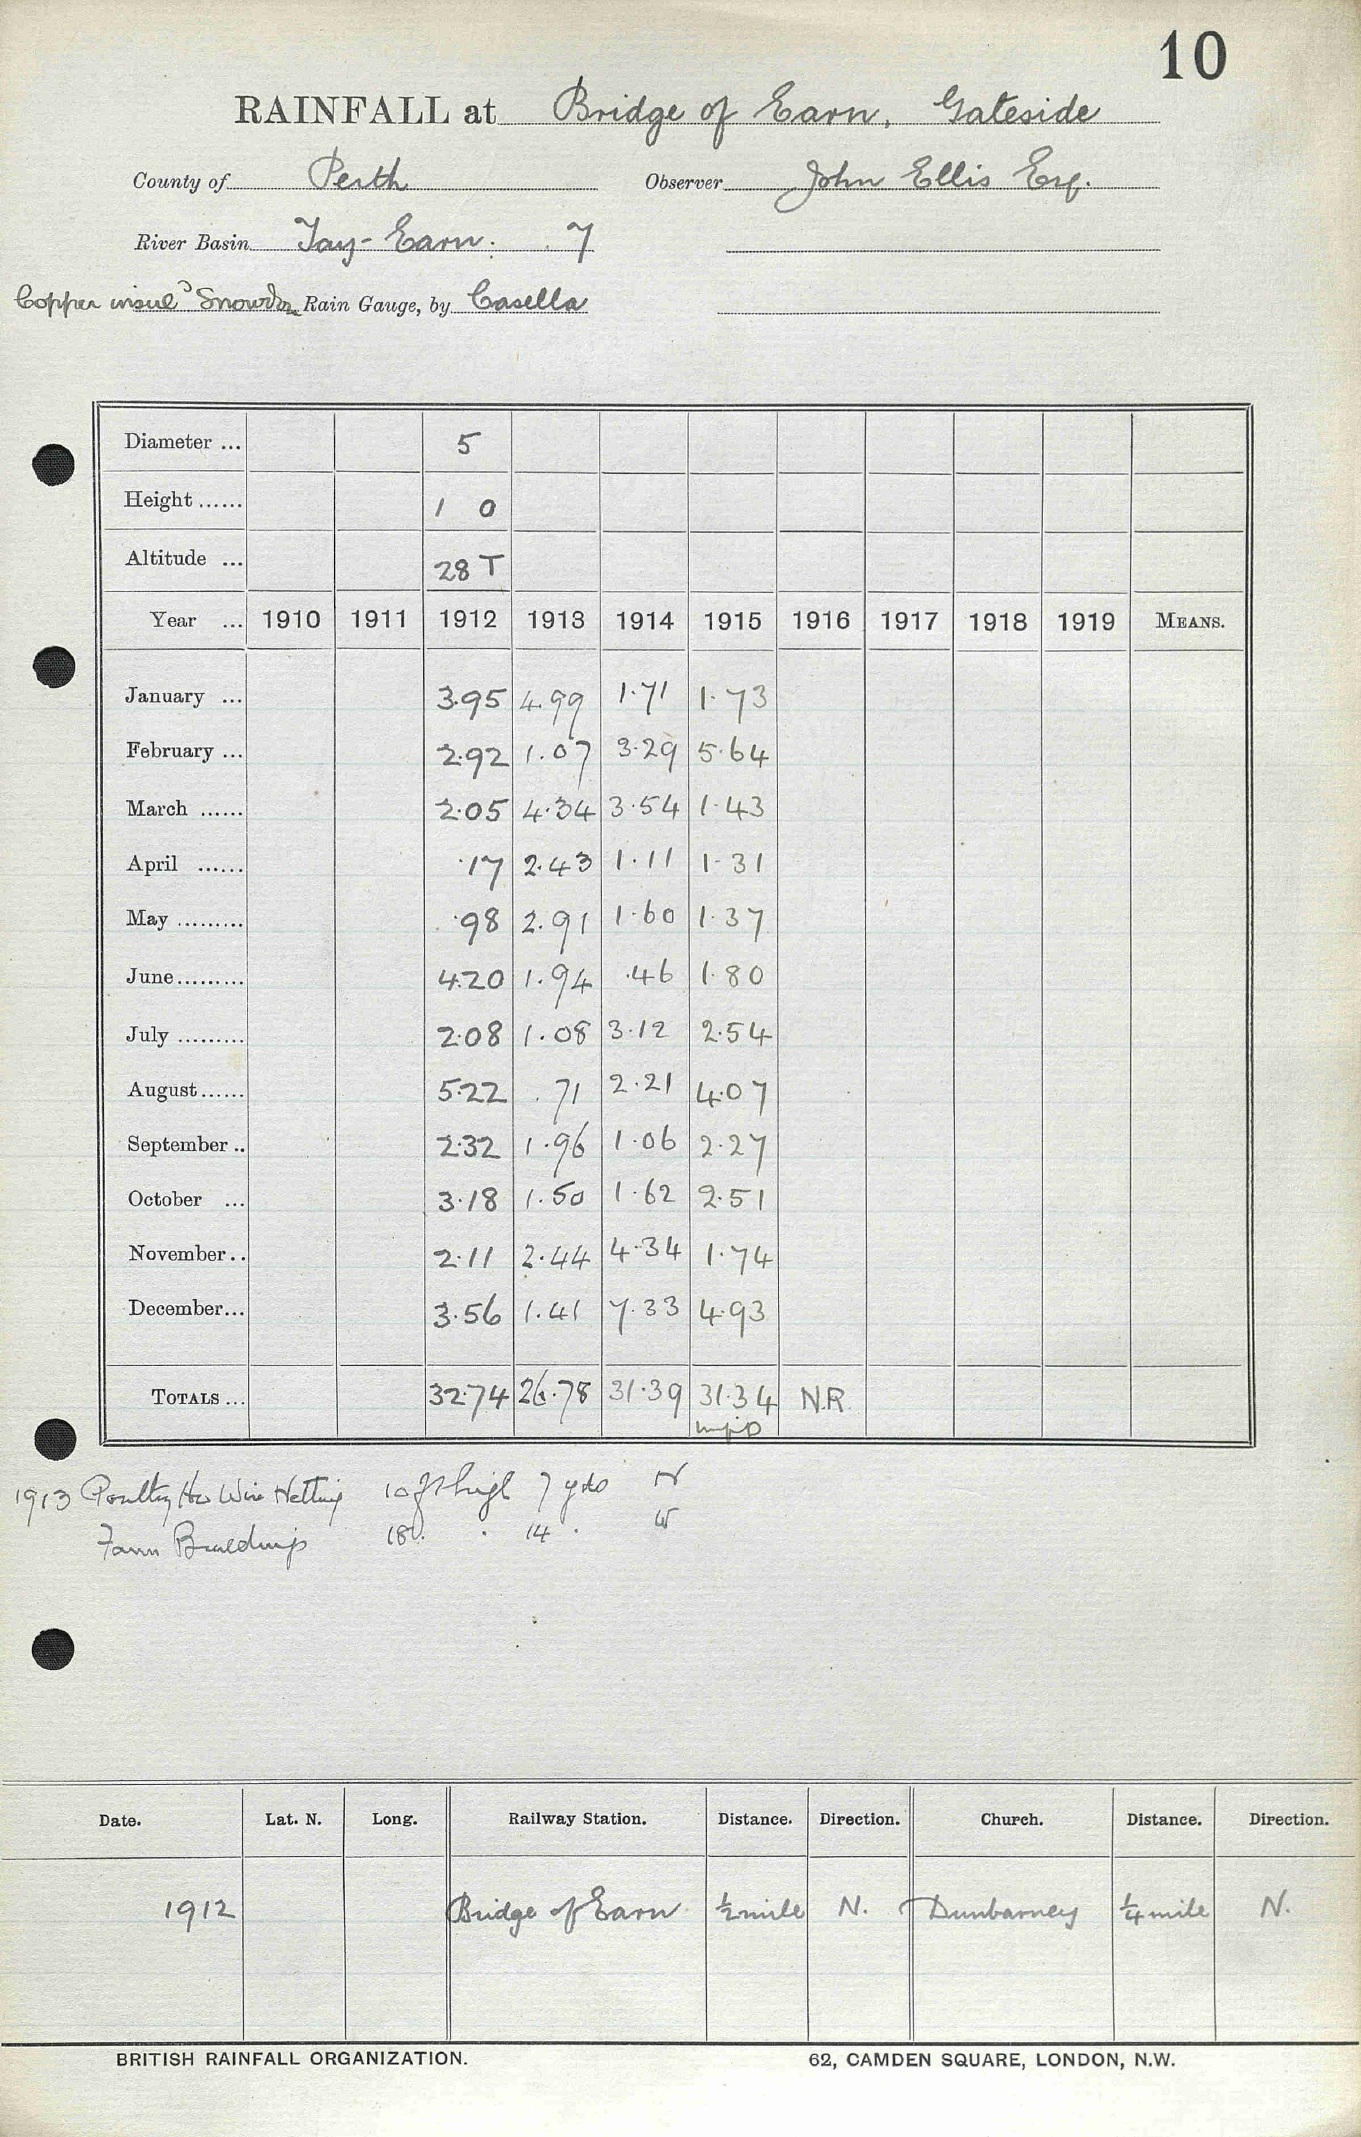 10
RAINFALL at Bridge of Earn, Gateside
County of Perth Observer John Ellis Esq.
River Basin Tay - Earn. 7
Copper insul^d Snowdon Rain Gauge, by Casella
Diameter ... 5
Height ...... 1 0
Altitude ... 28 T
Year ... 1910 1911 1912 1913 1914 1915 1916 1917 1918 1919 MEANS.
January ... 3.95 4.99 1.71 1.73
February ... 2.92 1.07 3.29 5.64
March ...... 2.05 4.34 3.54 1.43
April ...... .17 2.43 1.11 1.31
May ......... .98 2.91 1.60 1.37
June ......... 4.20 1.94 .46 1.80
July ......... 2.08 1.08 3.12 2.54
August ...... 5.22 .71 2.21 4.07
September .. 2.32 1.96 1.06 2.27
October ... 3.18 1.50 1.62 2.51
November .. 2.11 2.44 4.34 1.74
December ... 3.56 1.41 7.33 4.93
TOTALS ... 32.74 26.78 31.39 31.34 N.R.
1913 Poultry Ho Wire Netting 10 ft high 7 yds N
Farm Buildings 18 . 14 . W
Date. Lat. N. Long. Railway Station. Distance. Direction. Church. Distance. Direction.
1912 Bridge of Earn ½ mile N. Dunbarney ¼ mile N.
BRITISH RAINFALL ORGANIZATION. 62, CAMDEN SQUARE, LONDON, N.W.